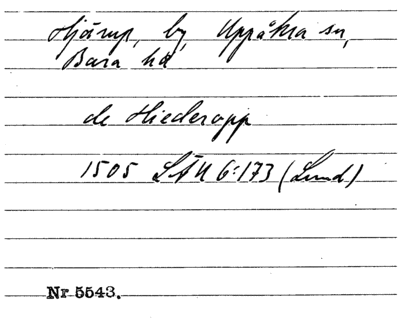 Hjärup, by, Uppåkra sn,
Bara hd
de Hiederopp
1505 LÄU 6:173 (Lund)
Nr 5543.